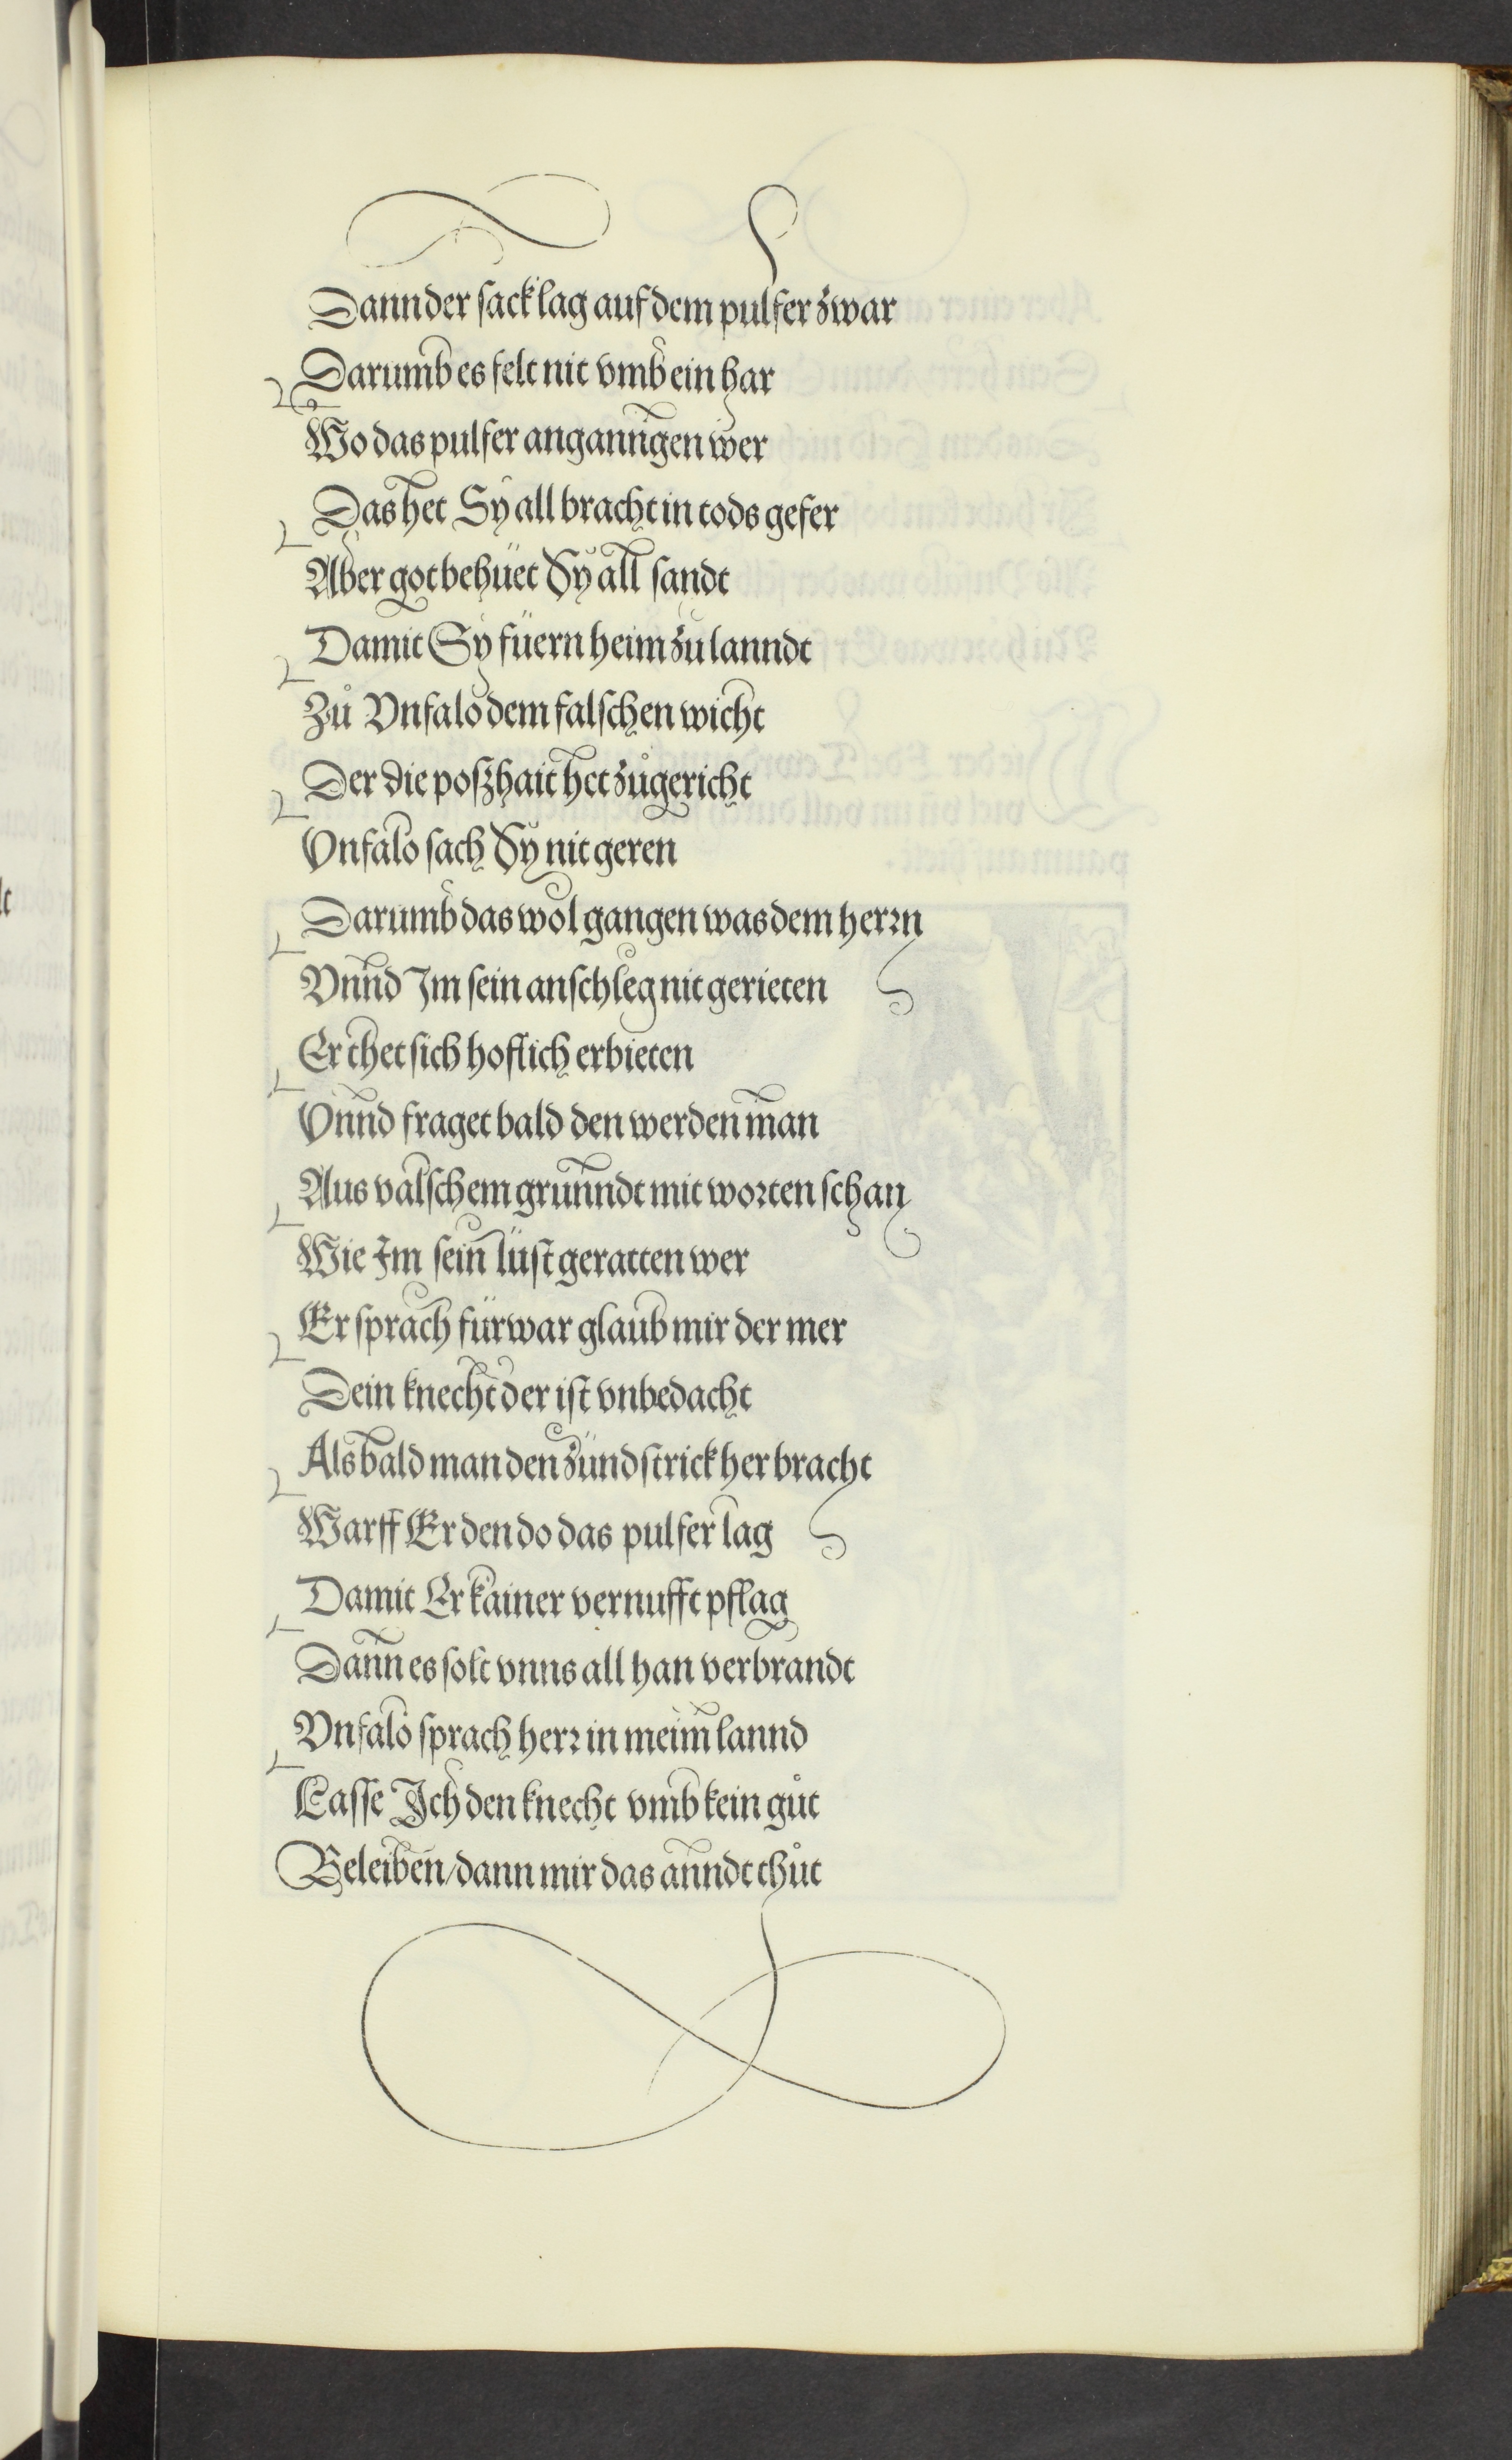 Dann der sack lag auf dem pulfer zwar
Darumb es felt nit vmb ein har
Wo das pulfer anganngen wer
Das het Sy all bracht in tods gefer
Aber got behüet Sy all sandt
Damit Sy füern heim zu lanndt
Zů Vnfalo dem falschen wicht
Der die poszhait het zůgericht
Vnfalo sach Sy nit geren
Darumb das wol gangen was dem herrn
Vnnd Im sein anschleg nit gerieten
Er thet sich hoflich erbieten
Vnnd fraget bald den werden man
Aus valschem grunndt mit worten schan
Wie Im sein lüst geratten wer
Er sprach fürwar glaub mir der mer
Dein knecht der ist vnbedacht
Als bald man den zündstrick her bracht
Warff Er den do das pulfer lag
Damit Er kainer vernufft pflag
Dann es solt vnns all han verbrandt
Vnfalo sprach herr in meim lannd
Lasse Ich den knecht vmb kein gůt
Beleiben/dann mir das anndt thůt